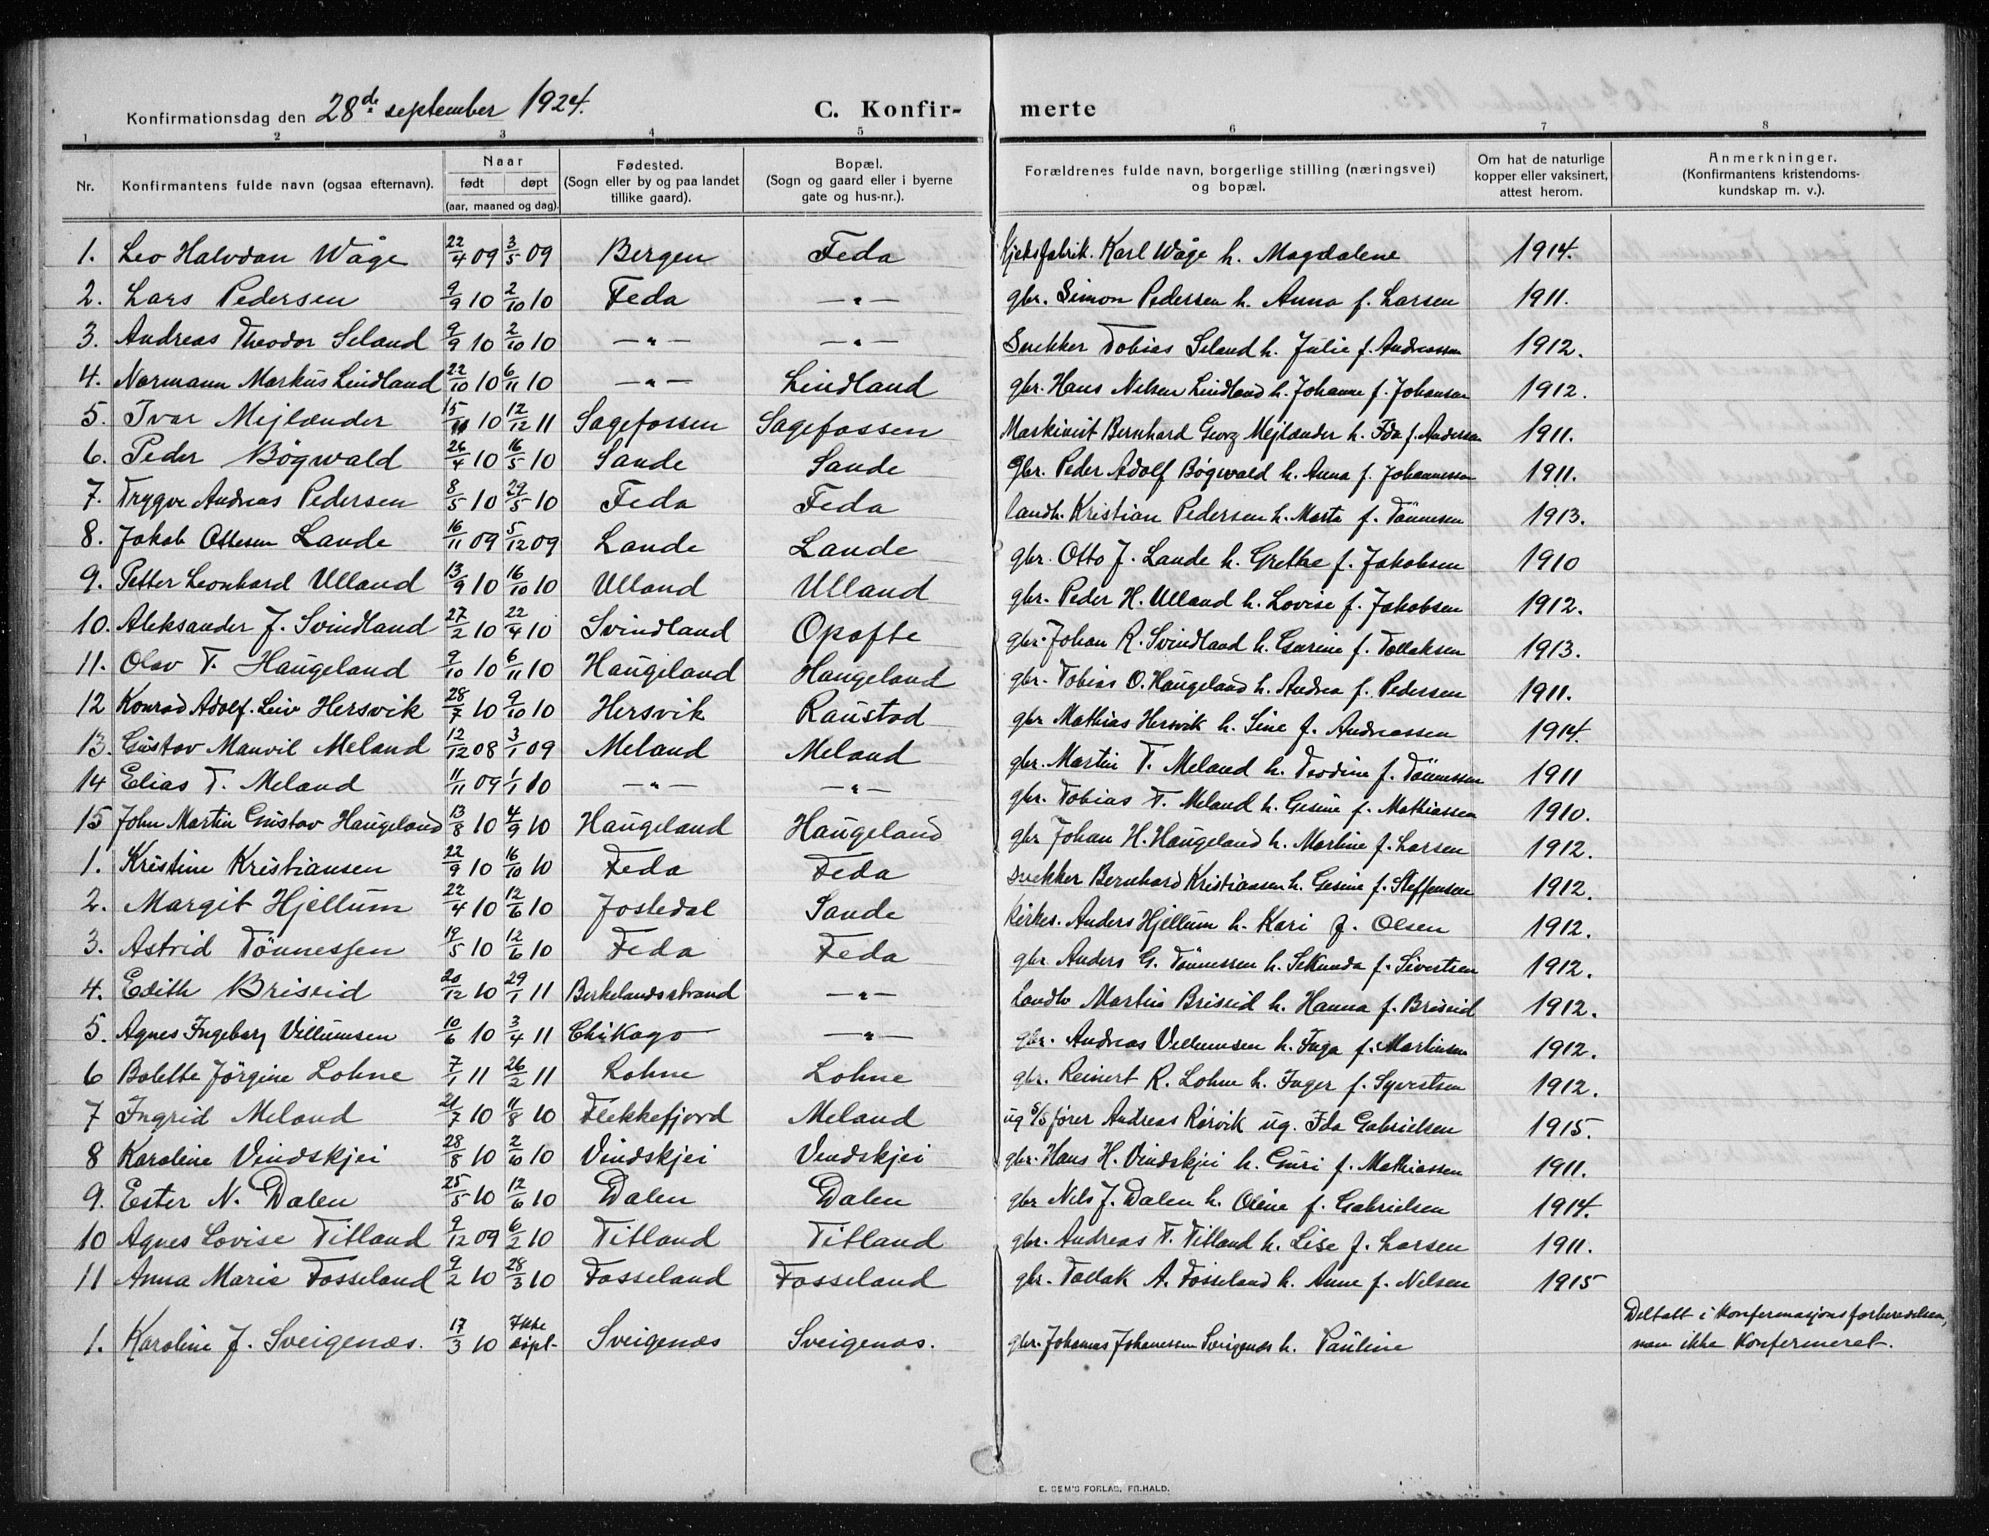 Konfirmationsdag den 28de september 1924. C. Konfir- merte
1 2 3 4 5 6 7 8
Nr. Konfirmantens fulde navn (ogsaa efternavn). Naar født døpt (aar, maaned og dag). Fødested. (Sogn eller by og paa landet tillike gaard). Bopæl. (Sogn og gaard eller i byerne gate og hus-nr.). Forældrenes fulde navn, borgerlige stilling (næringsvei) og bopæl. Om hat de naturlige kopper eller vaksinert, attest herom. Anmerkninger. (Konfirmantens kristendoms- kundskap m. v.).
1. Leo Halvdan Wåge 22/4 09 3/5 09 Bergen Feda Kjeksfabrik. Karl Wåge h. Magdalene 1914.
2. Lars Pedersen 9/9 10 2/10 10 Feda —"— gbr. Simon Pedersen h. Anna f. Larsen 1911.
3. Andreas Theodor Seland 9/9 10 2/10 10 —"— —"— Snekker Tobias Seland h. Julie f. Andreassen 1912.
4. Normann Markus Lindland 22/10 10 6/11 10 —"— Lindland gbr. Hans Nilsen Lindland h. Johanne f. Johansen 1912.
5. Ivar Mejlænder 15/10 10 12/12 11 Sagefossen Sagefossen Maskinist Bernhard Georg Mejlænder h. Ida f. Andersen 1911.
6. Peder Bøgwald 26/4 10 16/5 10 Sande Sande gbr. Peder Adolf Bøgwald h. Anna f. Johannessen 1911.
7. Trygve Andreas Pedersen 8/5 10 29/5 10 Feda Feda landh. Kristian Pedersen h. Marta f. Tønnesen 1913.
8. Jakob Ottesen Lande 16/11 09 5/12 09 Lande Lande gbr. Otto J. Lande h. Grethe f. Jakobsen 1910
9. Petter Leonhard Ulland 13/9 10 16/10 10 Ulland Ulland gbr. Peder H. Ulland h. Lovise f. Jakobsen 1912.
10. Aleksander J. Svindland 27/2 10 22/4 10 Svindland Opofte gbr. Johan R. Svindland h. Gurine f. Tollaksen 1913.
11. Olav T. Haugeland 9/10 10 6/11 10 Haugeland Haugeland gbr. Tobias O. Haugeland h. Andrea f. Pedersen 1911.
12 Konrad Adolf Leiv Hersvik 28/7 10 9/10 10 Hersvik Raustad gbr Mathias Hersvik h. Sine f. Andreassen 1914.
13. Gustav Manvil Meland 12/12 08 3/1 09 Meland Meland gbr. Martin T. Meland h. Teodine f. Tønnessen 1911
14 Elias T. Meland 11/11 09 1/1 10 —"— —"— gbr. Tobias T. Meland h. Gesine f. Mathiassen 1910.
15 John Martin Gustav Haugeland 13/8 10 4/9 10 Haugeland Haugeland gbr Johan H. Haugeland h. Martine f. Larsen 1912.
1. Kristine Kristiansen 22/9 10 16/10 10 Feda Feda Snekker Bernhard Kristiansen h. Gesine f. Steffensen 1912.
2. Margit Hjellum 22/4 10 12/6 10 Jostedal Sande Kirkes. Anders Hjellum h. Kari f. Olsen 1912.
3. Astrid Tønnessen 19/5 10 12/6 10 Feda Feda gbr Anders G. Tønnessen h. Sekunda f. Sivertsen 1912.
4. Edith Briseid 20/12 10 29/1 11 Berkelandsstrand —"— Landh Martin Briseid h. Hanna f. Briseid 1912.
5. Agnes Ingeborg Villumsen 10/6 10 3/4 11 Chikago —"— gbr. Andreas Villumsen h. Inga f. Martinsen 1912.
6 Bolette Jørgine Lohne 7/1 11 26/2 11 Lohne Lohne gbr. Reinert R. Lohne h. Inger f. Syvertsen 1912.
7 Ingrid Meland 21/7 10 11/8 10 Flekkefjord Meland ug s/s fører Andreas Rørvik ug. Ida Gabrielsen 1915.
8 Karoline Vindskjei 28/8 10 2/10 10 Vindskjei Vindskjei gbr. Hans H. Vindskjei h. Guri f. Mathiassen 1911.
9. Ester N. Dalen 25/5 10 12/6 10 Dalen Dalen gbr Nils J. Dalen h. Oline f. Gabrielsen 1914.
10 Agnes Lovise Titland 9/12 09 6/2 10 Titland Titland gbr. Andreas T. Titland h. Lise f. Larsen 1911.
11 Anna Marie Fosseland 9/2 10 28/3 10 Fosseland Fosseland gbr. Tollak A. Fosseland h. Anne f. Nilsen 1915
1. Karoline J. Sveigenæs. 17/3 10 Ikke døpt- Sveigenæs Sveigenæs. gbr. Johannes Johannessen Sveigenæs h. Pauline Deltatt i konfermasjonsforberedelsen, men ikke konfermeret.
E. SEM'S FORLAG, FR.HALD.